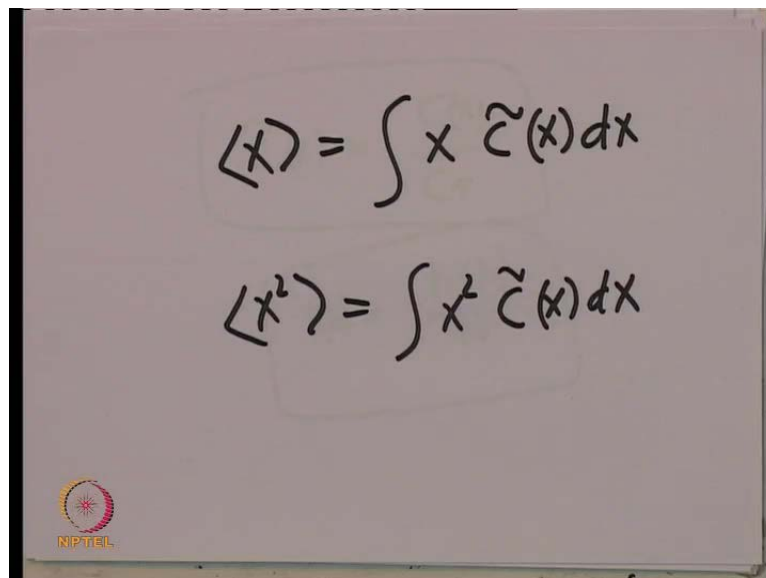 ⟨x⟩ = ∫ x c̃(x) dx
⟨x²⟩ = ∫ x² c̃(x) dx
NPTEL